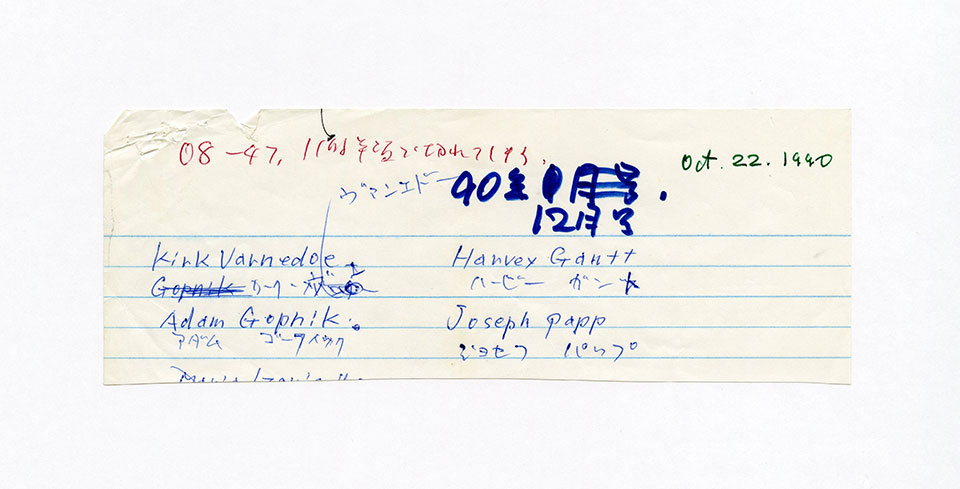 08-47,
Oct. 22. 1990
ヴァンエドー
90年
12月号
Kirk Varnedoe
Gopnik カーク・
Adam Gopnik.
アダム ゴープニック
Harvey Gantt
ハービー ガント
Joseph Papp
ジョセフ パップ